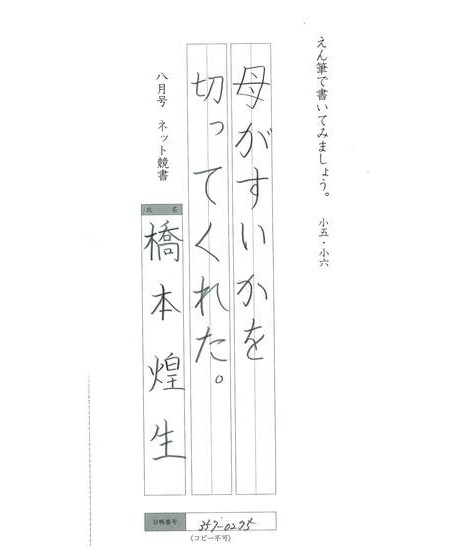 えん筆で書いてみましょう。 小五・小六
母がすいかを
切ってくれた。
八月号 ネット競書
氏名
橋本煌生
台帳番号 357-0275
(コピー不可)